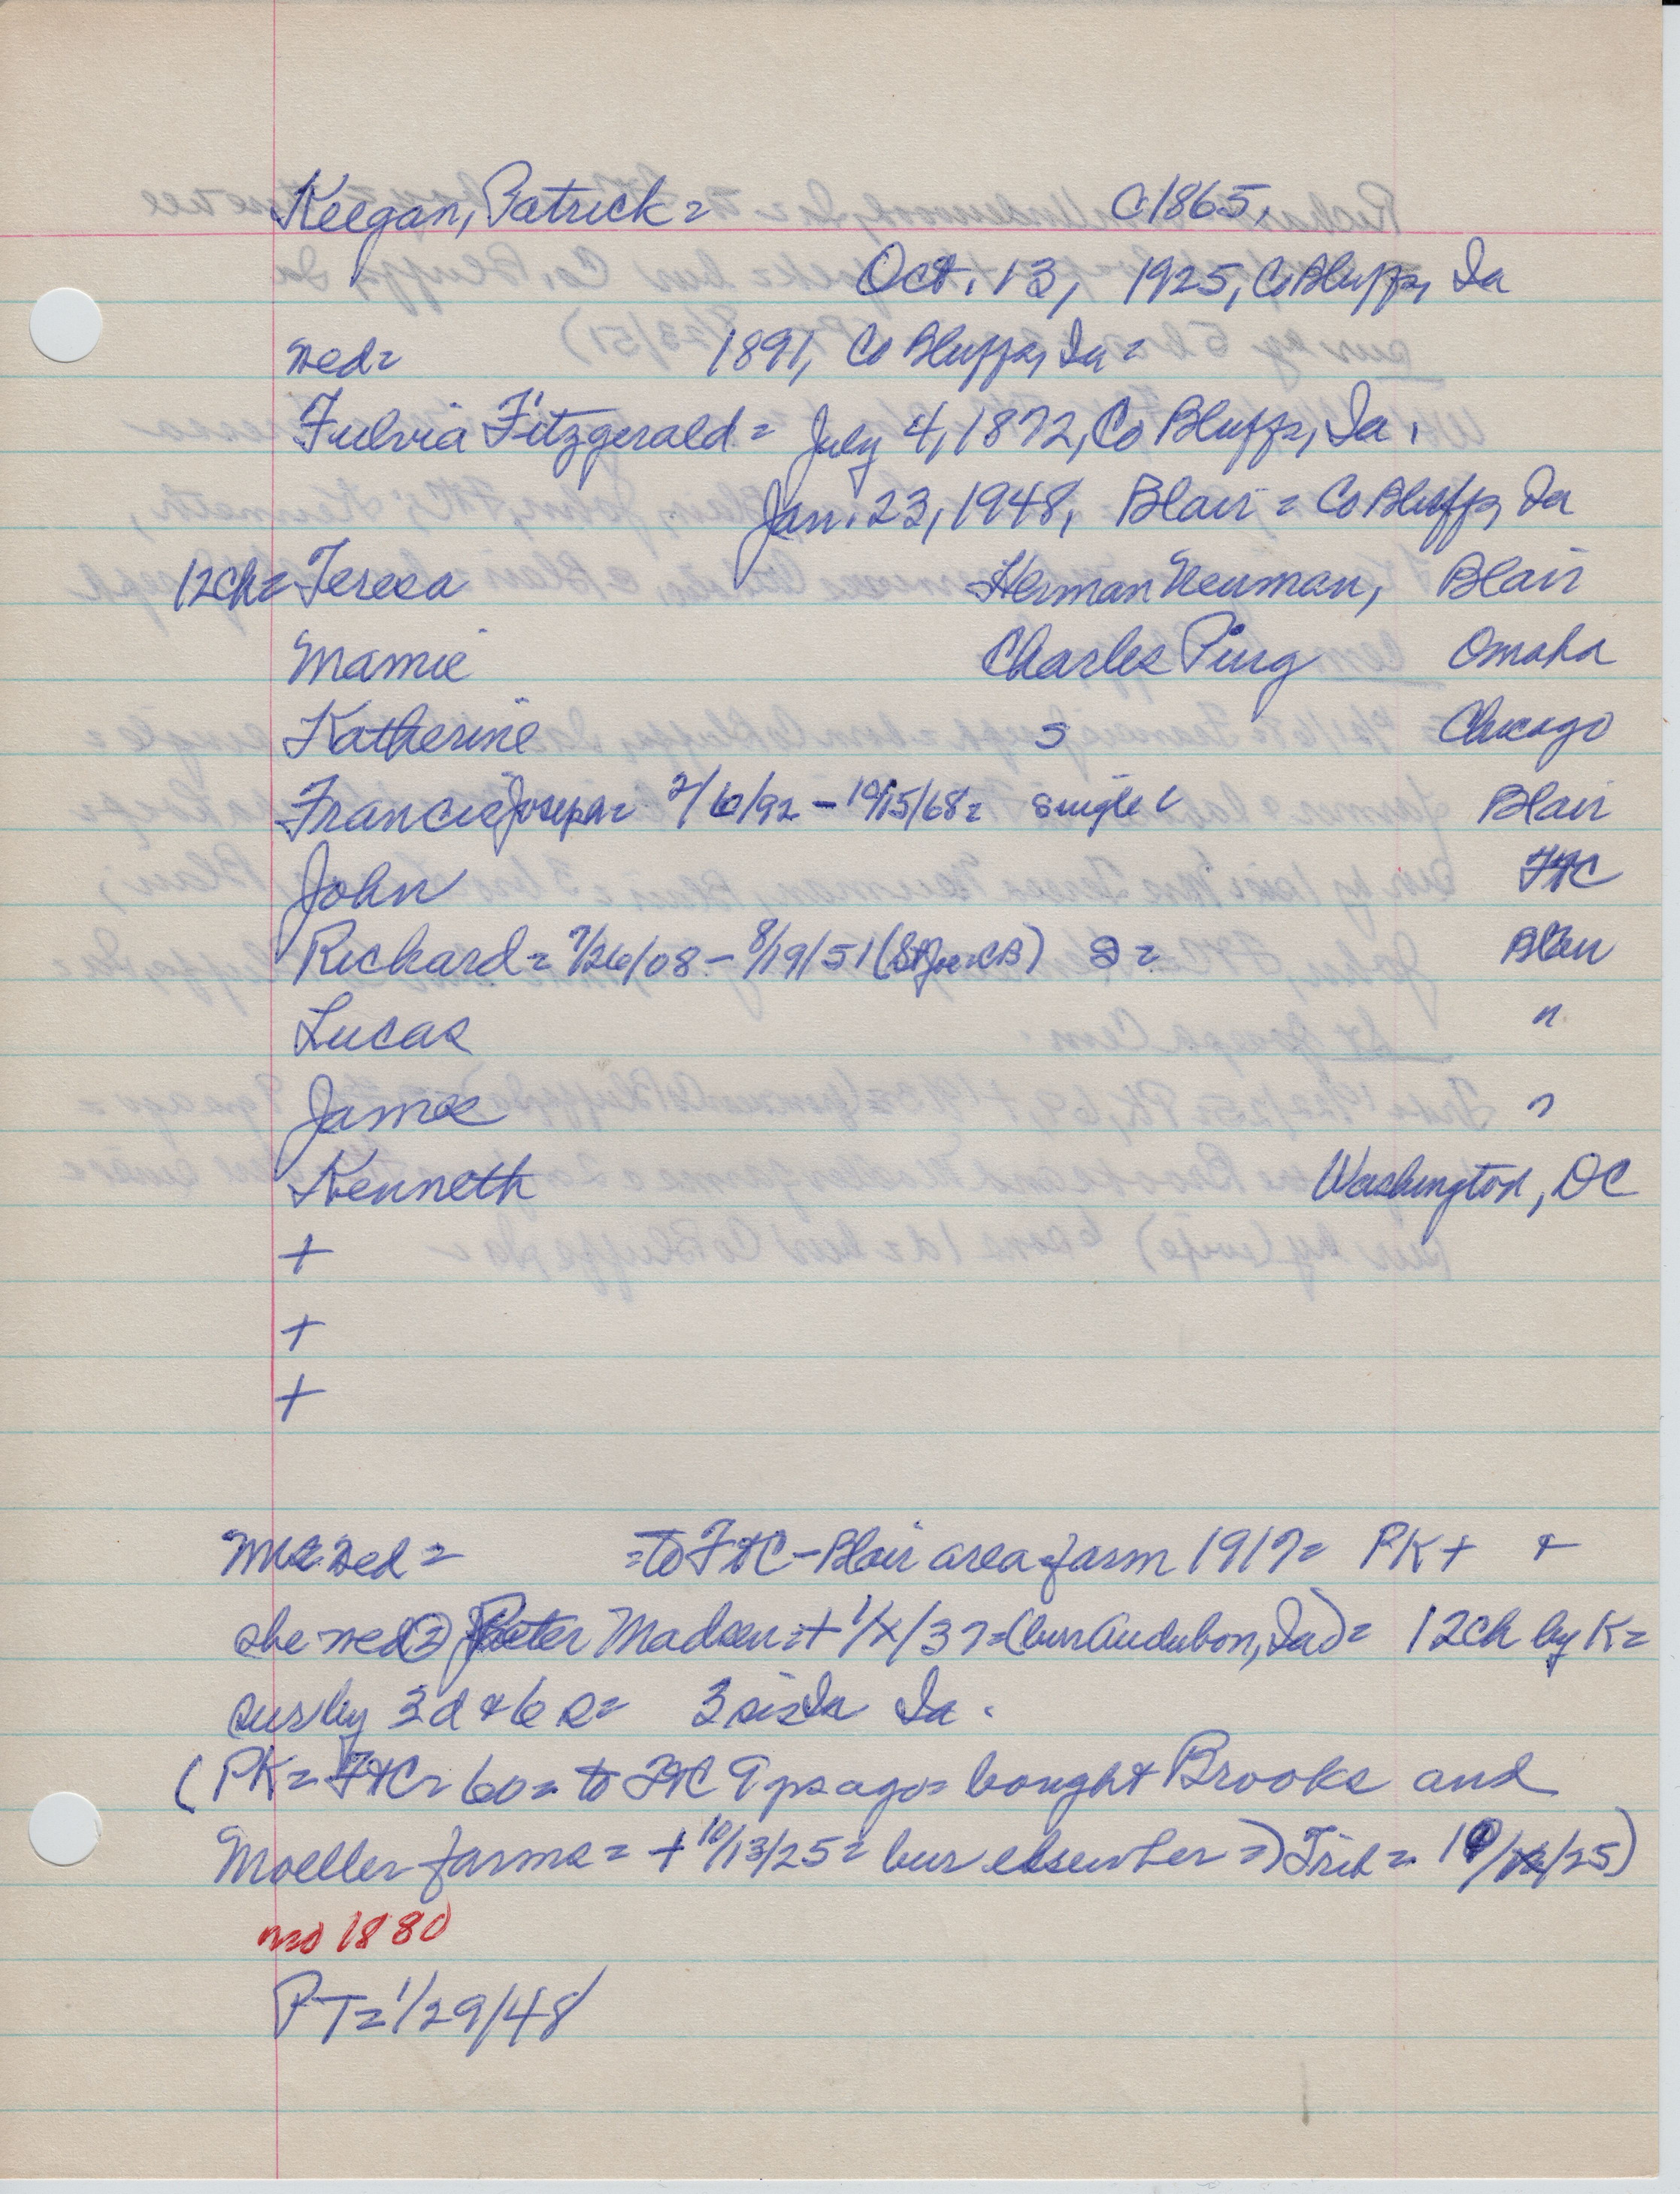 Keegan, Patrick = c1865,
Oct. 13, 1925, Co Bluffs, Ia
wed = 1891, Co Bluffs, Ia =
Fulvia Fitzgerald = July 4, 1872, Co Bluffs, Ia.
Jan. 23, 1948, Blair = Co Bluffs, Ia
12ch = Teresa Herman Neuman, Blair
Mamie Charles Ping Omaha
Katherine S Chicago
Francis Joseph = 2/6/92 - 10/15/68 = single = Blair
John FtC
Richard = 7/26/08 - 8/19/51 (St Joe = CB) S = Blair
Lucas "
James "
Kenneth Washington, DC
+
+
+
wed = = to FtC - Blair area farm 1917 = PK + +
she wed (2) Peter Madsen = + 1/x/37 = (bur Audubon, Ia) = 12ch by K =
sur by 3d & 6s = 3 sis Ia.
(PK = FtC = 60 = to FtC 9 yrs ago = bought Brooks and
Moeller farms = + 10/13/25 = bur elsewher =) Trib =
no 1880
PT = 1/29/48